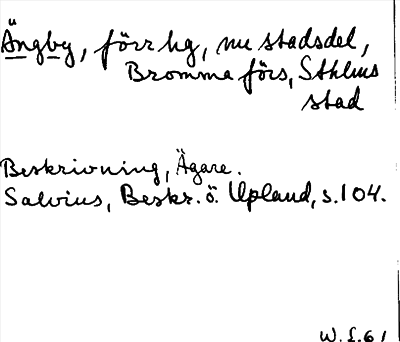 Ängby, förr hg, nu stadsdel,
Bromma förs, Sthlms
stad
Beskrivning, Ägare.
Salvius, Beskr. ö. Upland, s. 104.
W. L. 61